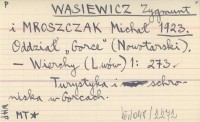 P
WASIEWICZ Zygmunt
i MROSZCZAK Michał 1923.
Oddział „Gorce" (Nowotarski).
— Wierchy (Lwów) 1: 273.
Turystyka i schro-
niska w Gorcach.
MT*